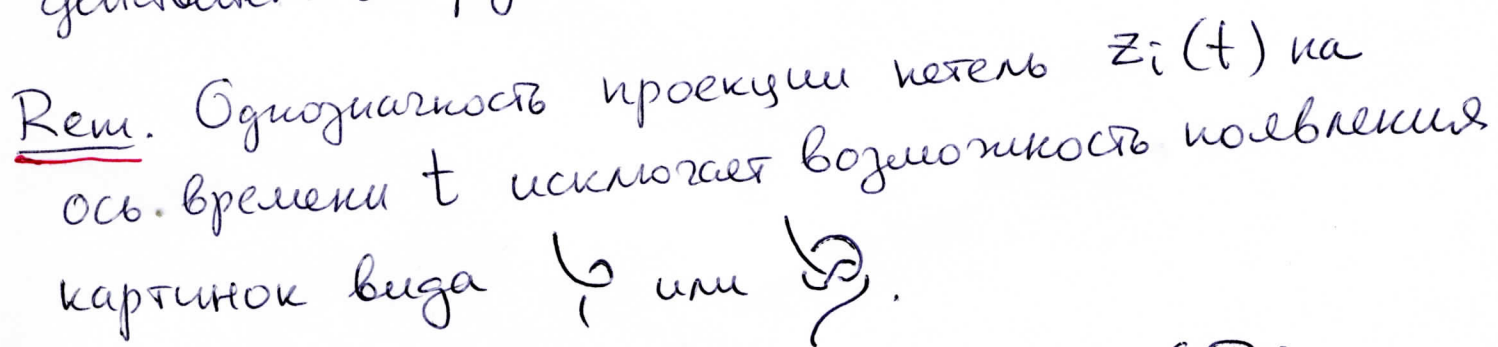 Rem. Однозначность проекции петель z_i(t) на
ось времени t исключает возможность появления
картинок вида или .